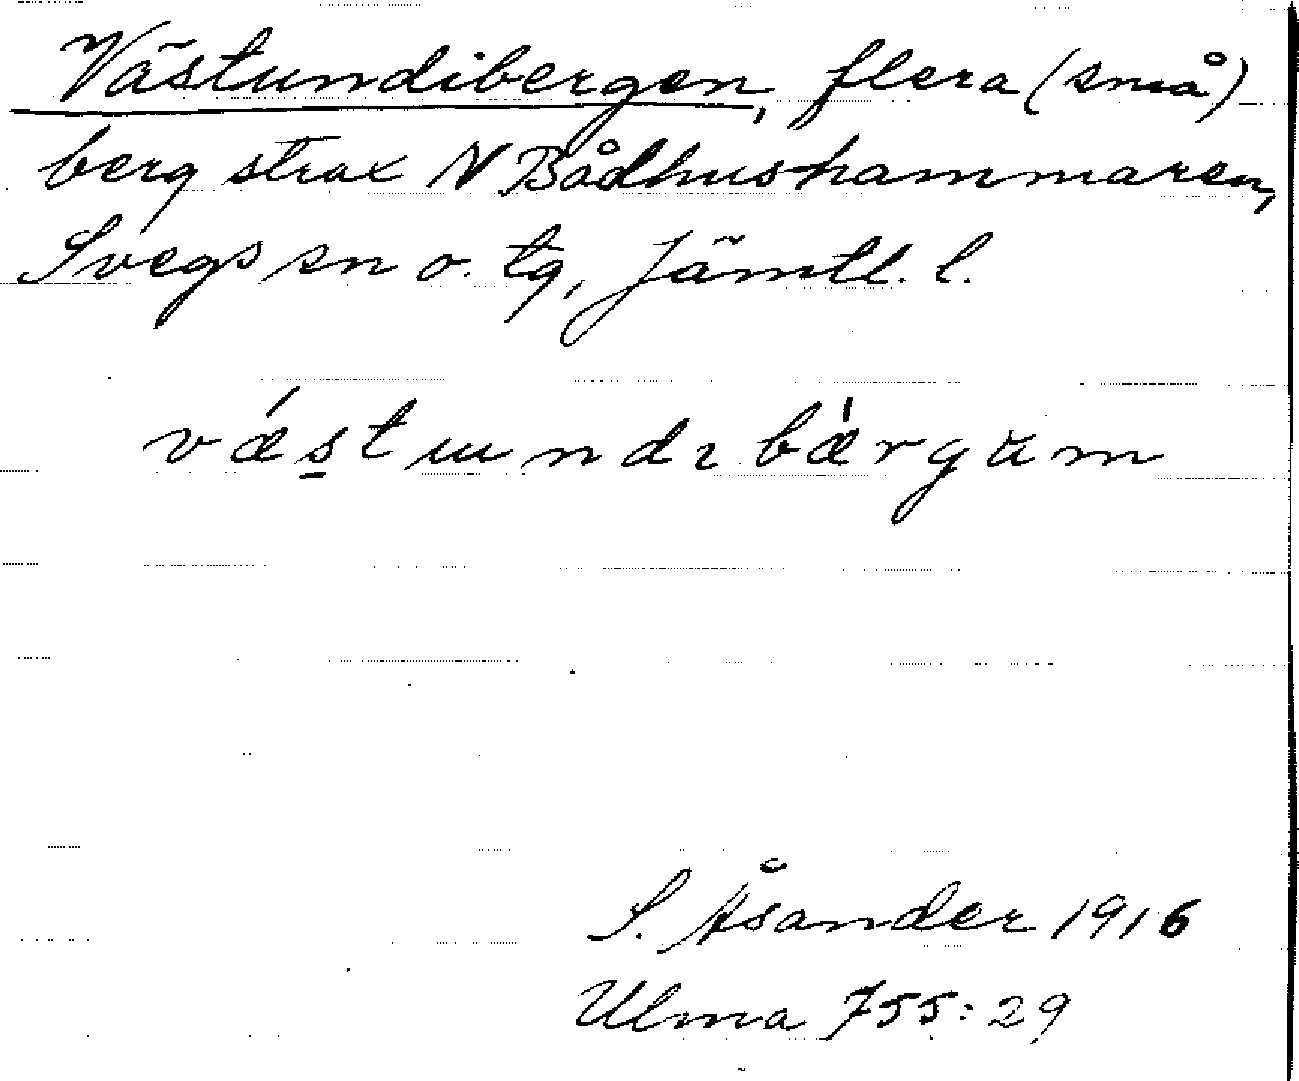 Västundibergen, flera (små)
berg strax N Bådhushammaren,
Svegs sn o. tg, Jämtl. l.
vǽs̲tɯndɩbǽrgăm
S. Åsander 1916
Ulma 755:29